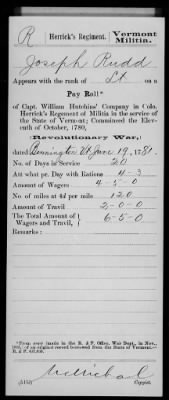 R Herrick's Regiment. Vermont Militia.
Joseph Rudd
Appears with the rank of Lt. on a
Pay Roll*
of Capt. William Hutchins' Company in Colo.
Herrick's Regiment of Militia in the service of
the State of Vermont; Commenced the Ele-
venth of October, 1780,
(Revolutionary War,)
dated Bennington Vt June 19, 1781
No. of Days in Service 20
Am't what pr. Day with Rations 4-3
Amount of Wagers 4-5-0
No. of miles at 4d per mile 120
Amount of Travil 2-0-0
The Total Amount of Wagers and Travil, 6-5-0
Remarks:
*From copy made in the R. & P. Office, War Dep't., in Nov.,
of an original record borrowed from the State of Vermont.—
R. & P.
Copyist.